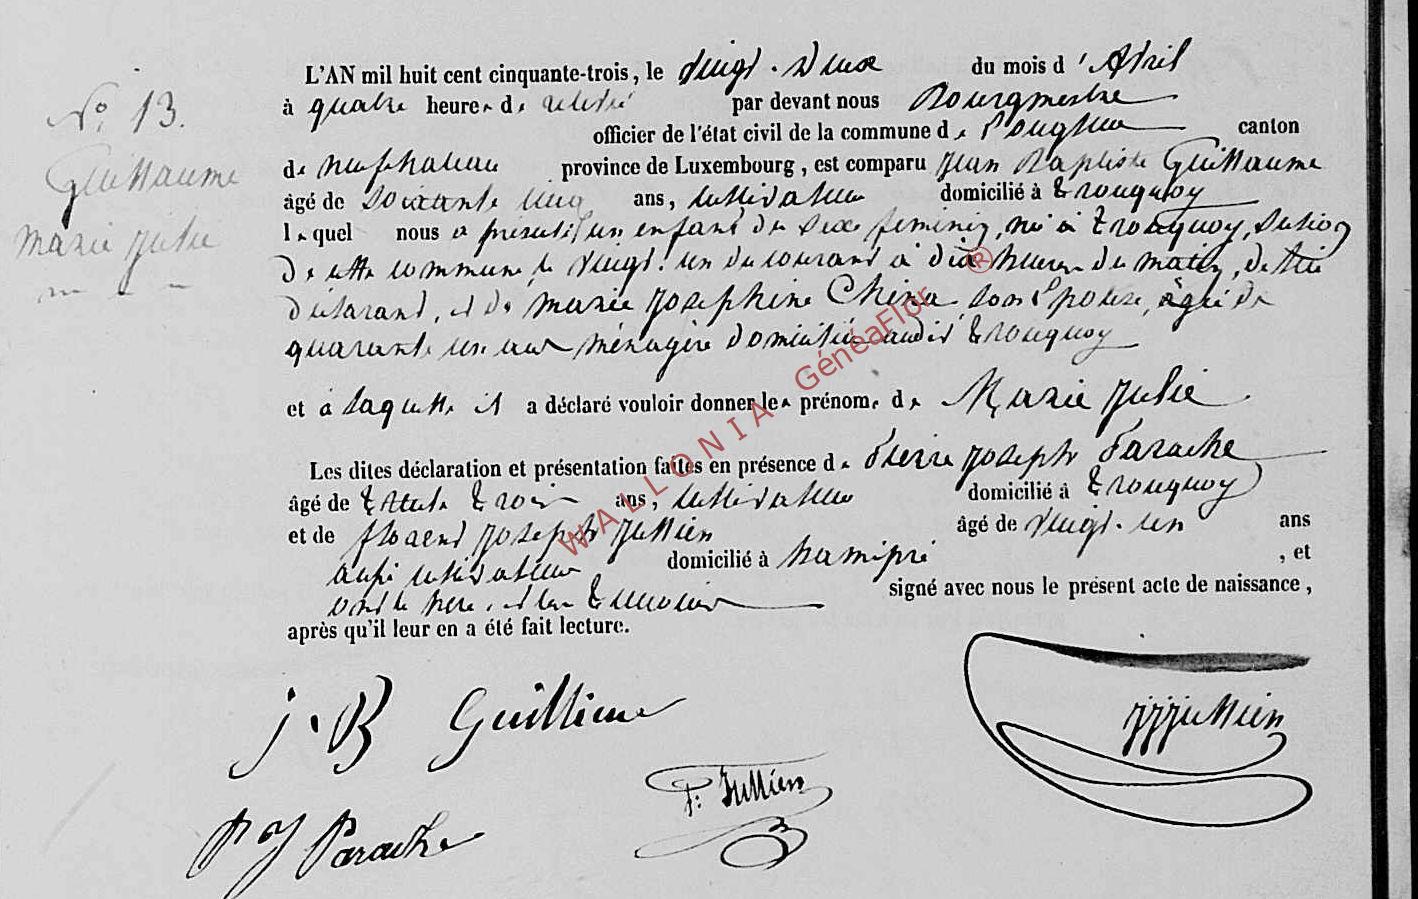 N° 13.
Guillaume
Marie Julie
L'AN mil huit cent cinquante-trois, le vingt-deux du mois d'Avril
à quatre heures de relevée par devant nous Bourgmestre
officier de l'état civil de la commune de canton
de Neufchateau province de Luxembourg, est comparu Jean Baptiste Guillaume
âgé de soixante cinq ans, cultivateur domicilié à Tronquoy
lequel nous a présenté un enfant du sexe feminin, né à Tronquoy, section
de cette commune le vingt-un du courant à dix heures du matin, de lui
déclarant, et de Marie Josephine China, son épouse, âgée de
quarante un ans ménagère domiciliée audit Tronquoy
et à laquelle il a déclaré vouloir donner les prénoms de Marie Julie
Les dites déclaration et présentation faites en présence de Pierre Joseph Parache
âgé de trente trois ans, cultivateur domicilié à Tronquoy
et de florent Joseph Jullien âgé de vingt-un ans
aussi cultivateur domicilié à hamipré, et
ont le père, et les temoins signé avec nous le présent acte de naissance,
après qu'il leur en a été fait lecture.
J. B Guillieme
JJJullien
F: Jullien
P J Parache
WALLONIA GénéaFlor ®